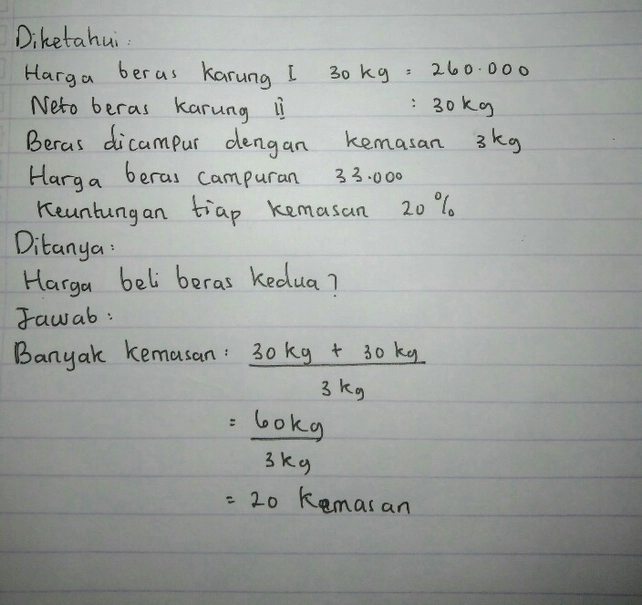 Diketahui:
Harga beras karung I 30 kg = 260.000
Neto beras karung ii : 30 kg
Beras dicampur dengan kemasan 3kg
Harga beras campuran 33.000
Keuntungan tiap kemasan 20%
Ditanya:
Harga beli beras kedua?
Jawab:
Banyak kemasan: 30 kg + 30 kg
3 kg
= 60kg
3 kg
= 20 Kemasan